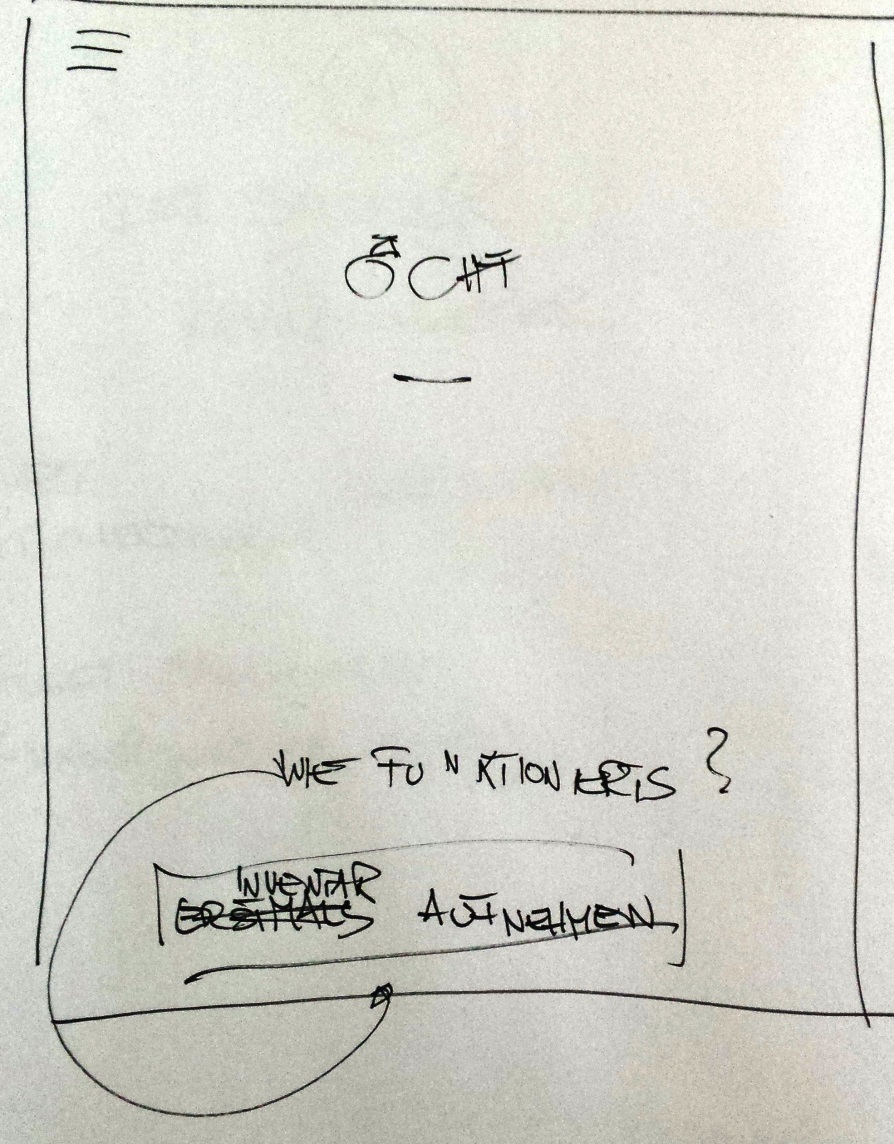 WIE FUNKTIONIERTS ?
INVENTAR
ERSTMALS AUFNEHMEN